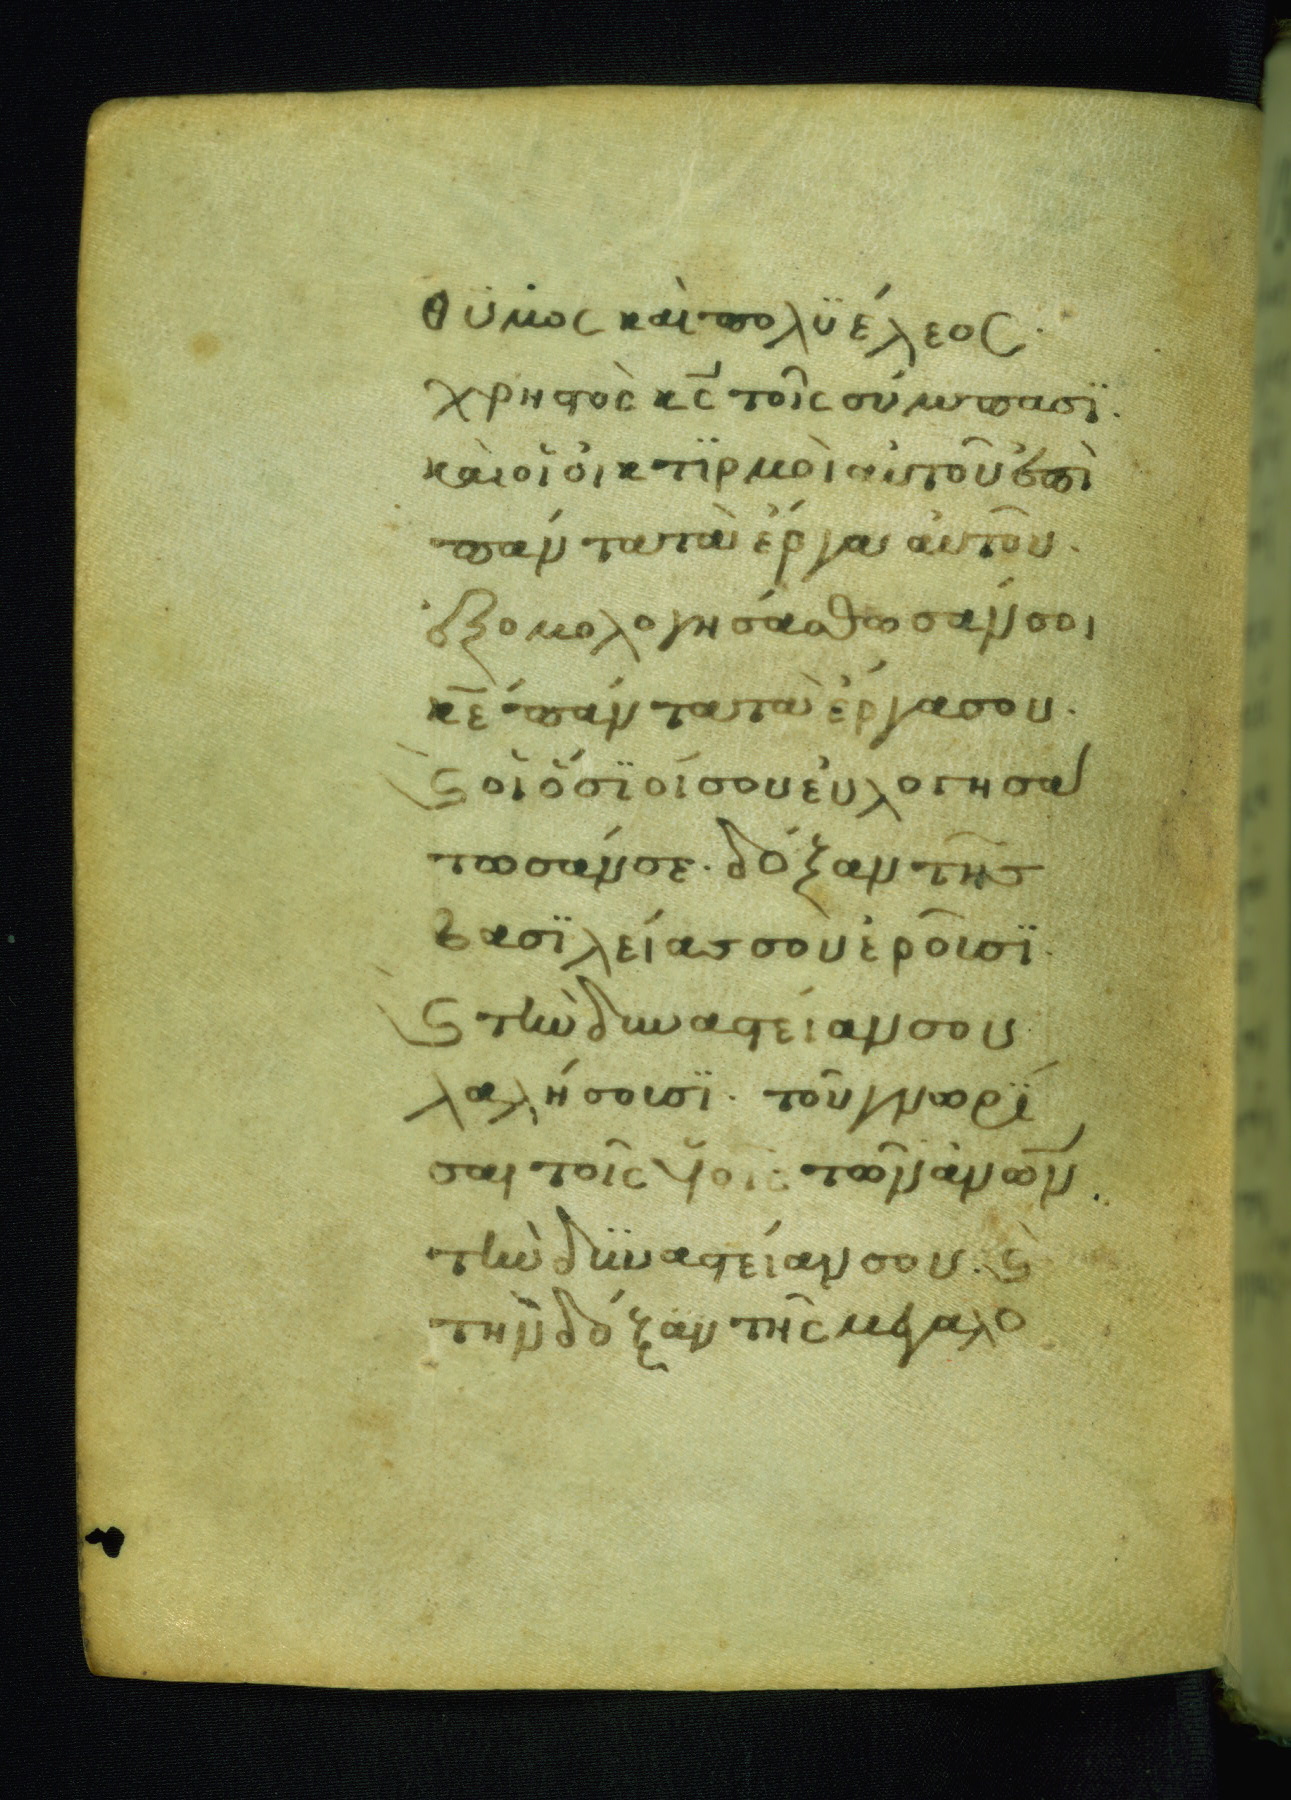 θϋμος καὶ πολϋέλεος·
χρηστὸς κ̅ς̅ τοῖς σύμπασϊ·
καὶ οἱ οἰκτϊρμοὶ αὐτοῦ ἐπὶ
πάντα τὰ ἔργα αὐτοῦ·
ἐξομολογησάσθωσάν σοι
κ̅ε̅ πάντα τὰ ἔργα σου·
ϛ οἱ ὅσϊοί σου εὐλογησά
τωσάν σε· δόξαν τῆς
βασϊλείας σοὺ ἐροῦσϊ·
ϛ τὴν δυναστείαν σου
λαλήσουσϊ· τοῦ γνωρΐ
σαι τοῖς υἱοῖς τῶν ἀν̅ω̅ν̅
τὴν δϋναστείαν σου· ϛ
τὴν δόξαν τῆς μεγαλο